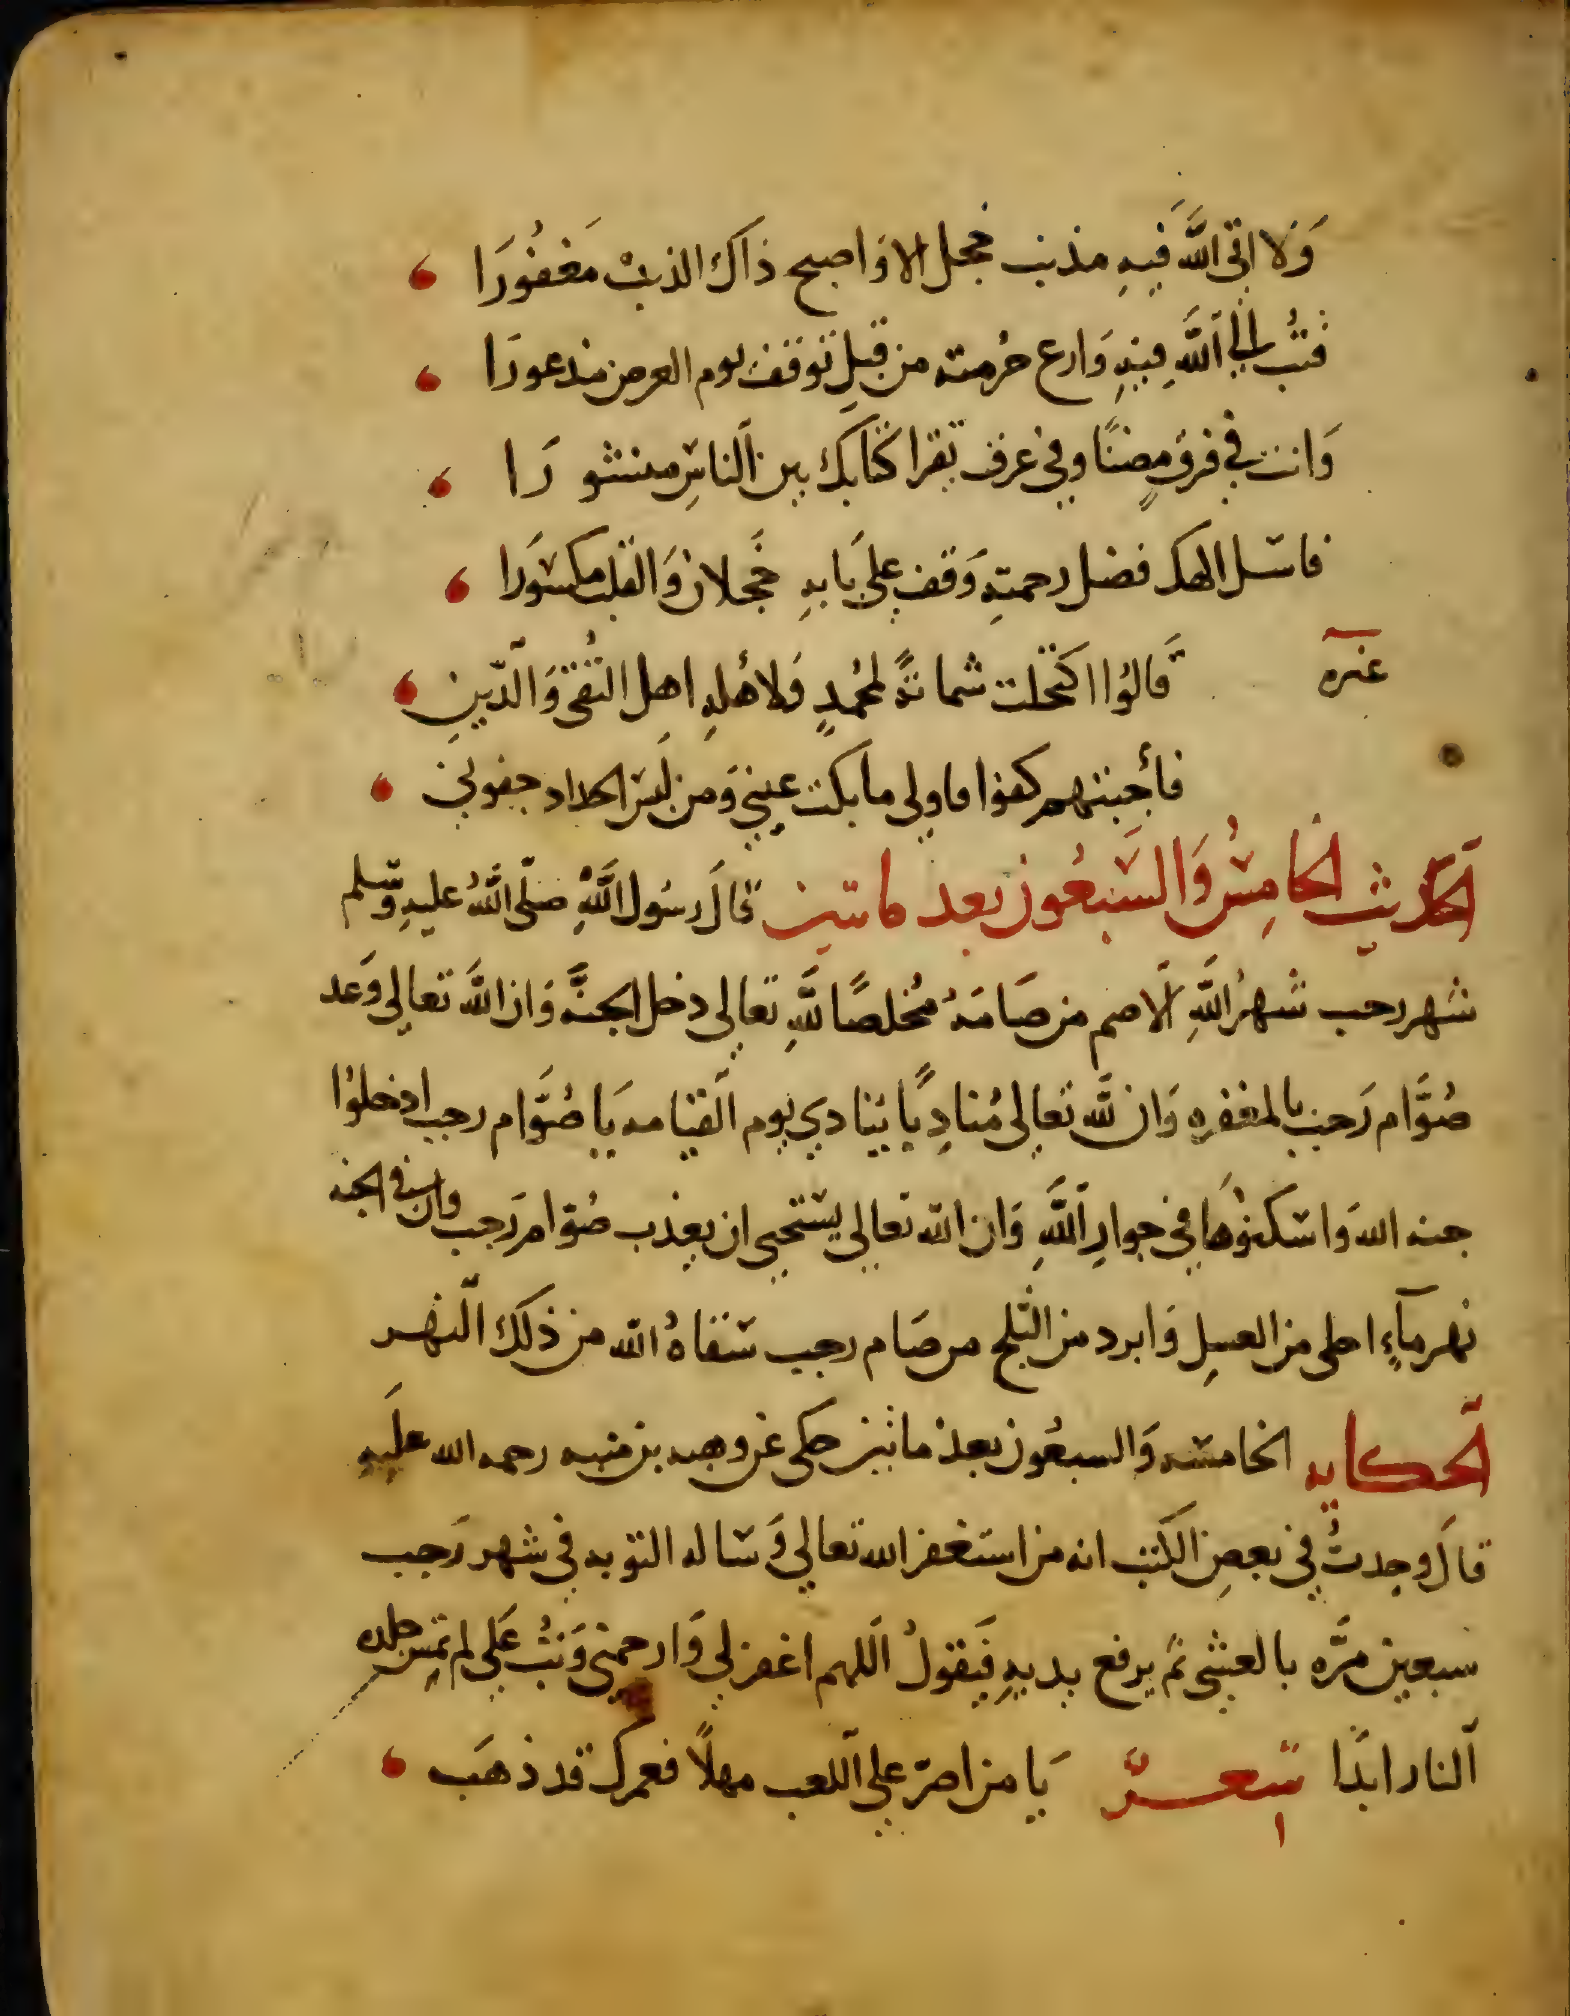 وَلا اتى اللَّه فَيهِ مذنب خجل الا وَاصبح ذاكَ الذنبْ مَغفُورَا
فتُب الى اللَّهِ فيهِ وَارع حُرمته من قبلِ توقف يوم العرض مذعورَا
وَانت في فرقٍ مضنًا وفي غرق تقرا كتابك بين الناسِ منشورَا
فاسَل الهك فضل رحمتهِ وَقف على بَابهِ خَجلان وَالقلب مكسُورَا
غيره قَالوُا اكتحلت شماتةً لمحُمدٍ وَلاهُلهِ اهل التُقى وَالدّينِ
فأجبتهم كفوا فاولى ما بكت عيني وَمن لبسَ الحداد جفوني
الحَديث الخامِسُ وَالسَّبعُون بعد ماتين قالَ رسُول اللَّهِ صَلّى اللَّهُ عليهِ وَسّلم
شهر رجب شهرُ اللَّهِ الاصم من صَامَهُ مُخلصًا للَّهِ تعالى دخل الجنَّه وَان اللَّه تعالى وَعد
صُوَّام رَجب بالمغفره وَان للَّه تعالى مُنادِيًا يُنادي يوم القيامه يَا صُوَّام رجب ادخلوُا
جنه الله وَاسكنوُها في جوارِ اللَّهِ وَان الله تعالى يستحيى ان يعذب صُوّام رَجب وان في الجنه
نهر مآءٍ احلى من العسلِ وَابرد من الثلج من صَام رجب سَقاهُ الله من ذلكَ النهر
الحكايه الخامسه وَالسبعُون بعدَ ماتين حكى عَن وهب بن منبه رحمه الله عليهِ
قالَ وجدتُ في بعضِ الكتب انه من استغفر الله تعالى وَساله التوبه في شهر رَجب
سبعين مَرَّه بالعشى ثم يرفع يديهِ فَيَقولُ اللهم اغفر لي وَارحمني وَتُب عَلي لم تمس جلده
النار ابدًا شعرٌ يَا من اصرّ على اللعب مهلًا فعمرك قد ذهَب